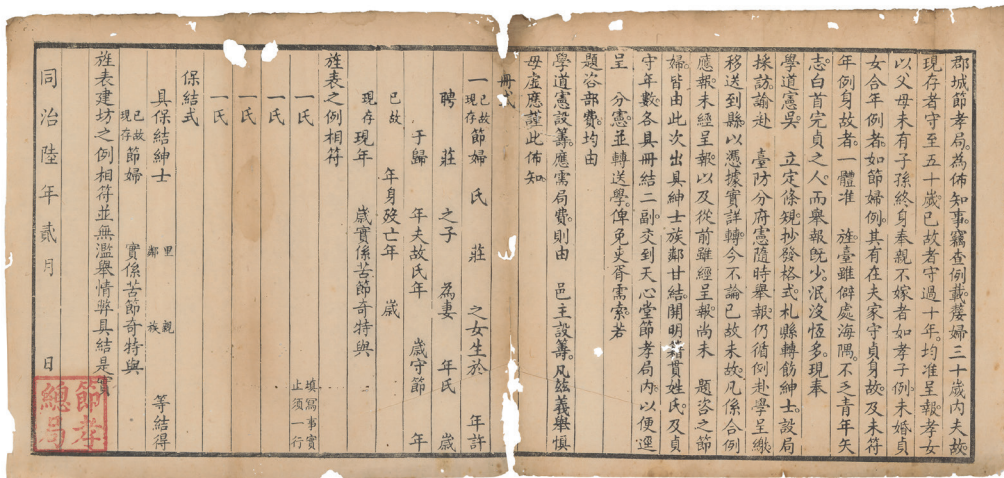 郡城節孝局。為佈知事。竊查例載。孀婦三十歲內夫故。
現存者守至五十歲。已故者守過十年。均准呈報。孝女
以父母未有子孫終身奉親不嫁者如孝子例。未婚貞
女合年例者。如節婦例。其有在夫家守貞身故。及未符
年例身故者。一體准 旌。臺雖僻處海隅。不乏青年矢
志。白首完貞之人。而舉報旣少。泯沒恆多。現奉
學道憲吳 立定條規。抄發格式。札縣轉飭紳士。設局
採訪。諭赴 臺防分府憲隨時舉報。仍循例赴學呈繳。
移送到縣。以憑據實詳轉。今不論已故未故。凡係合例
應報。未經呈報。以及從前雖經呈報。尚未 題咨之節
婦。皆由此次出具紳士族鄰甘結。開明籍貫姓氏。及貞
守年數。各具冊結二副。交到天心堂節孝局內。以便逕
呈 分憲。並轉送學。俾免吏胥需索。若
題咨部費。均由
學道憲設籌。應需局費。則由 邑主設籌。凡茲義舉。慎
毋虛應。謹此佈知。
冊式
一 已故現存 節婦 氏 莊 之女生於 年許
聘 莊 之子 為妻 年氏 歲
于歸 年夫故氏年 歲守節 年
已故 年身歿亡年 歲
現存 現年 歲實係苦節奇特與
旌表之例相符
一氏 填寫事實
一氏 止須一行
一氏
一氏
保結式
具保結紳士 里鄰 親族 等結得
已故現存 節婦 實係苦節奇特與
旌表建坊之例相符並無濫舉情弊具結是實
同治陸年貳月 日
節孝總局